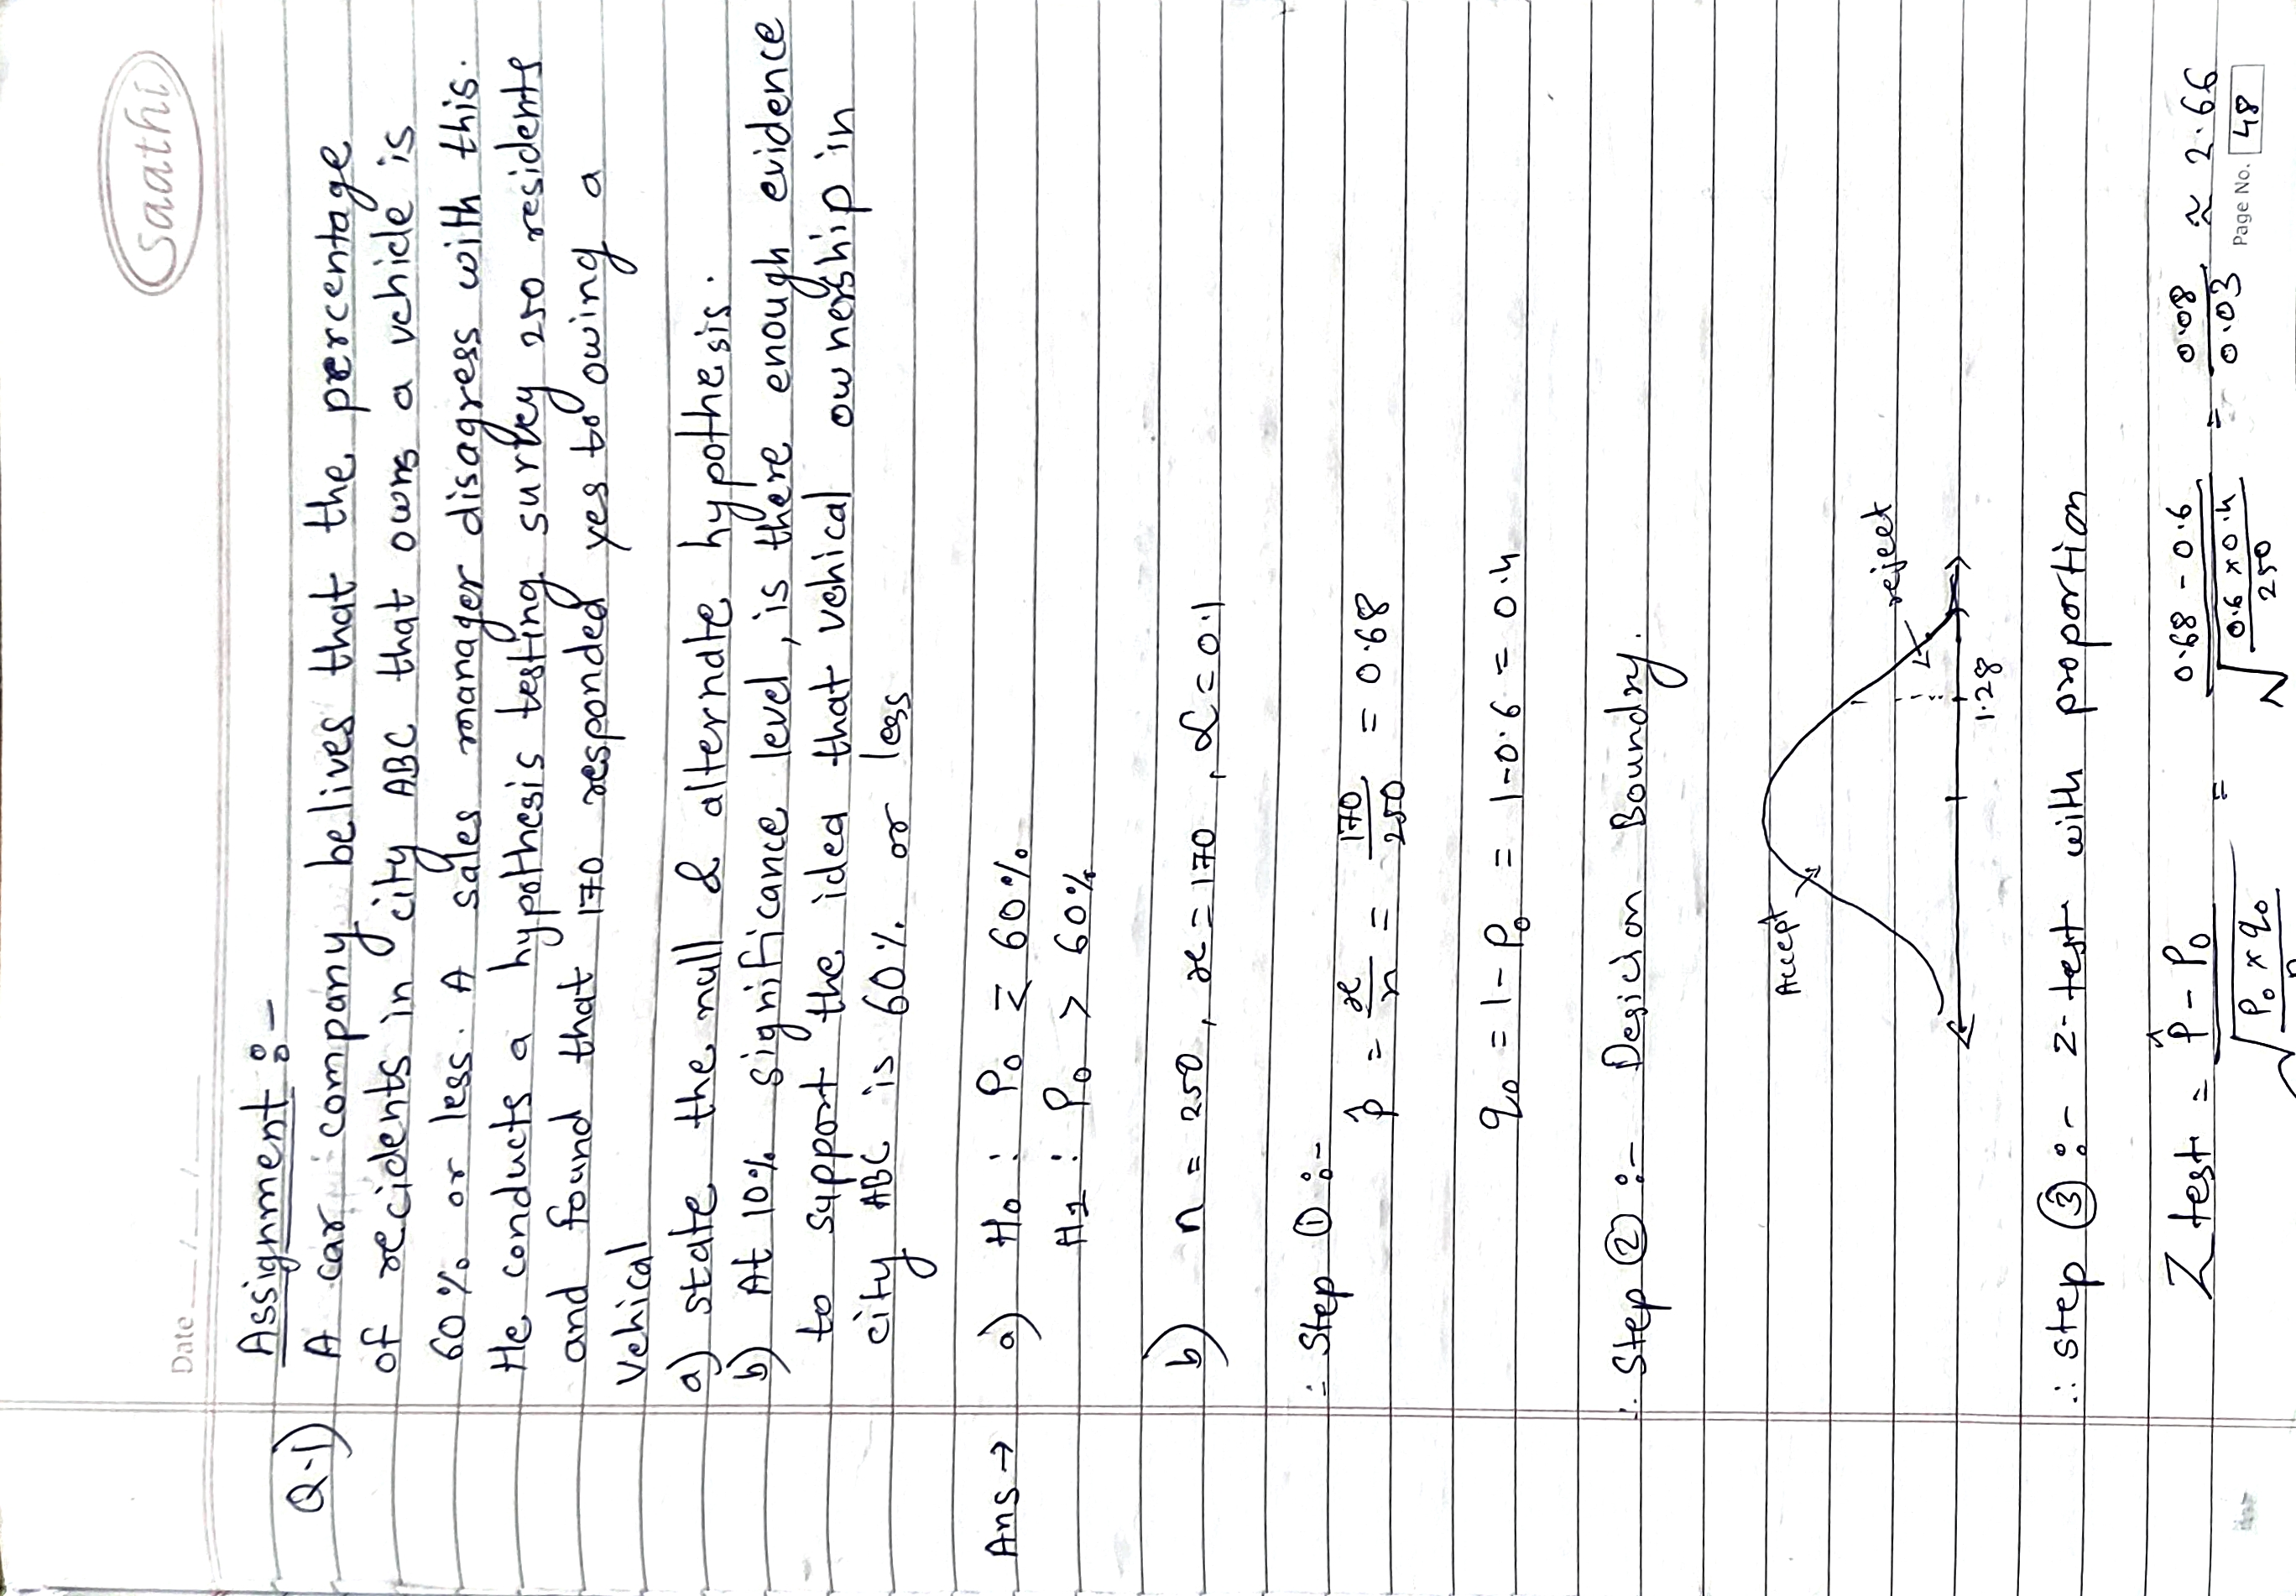 saathi
Date __/__/____
Assignment :-
Q.1) A car company belives that the percentage
of recidents in city ABC that owns a vehicle is
60% or less. A sales manager disagress with this.
He conducts a hypothesis testing survey 250 residents
and found that 170 responded yes to owing a
Vehical
a) state the null & alternate hypothesis.
b) At 10% significance level, is there enough evidence
to support the idea that vehical ownership in
city ABC is 60% or less
Ans → a) H0 : P0 ≤ 60%
H1 : P0 > 60%
b) n = 250, x = 170, α = 0.1
∴ Step ① :-
p̂ = x/n = 170/250 = 0.68
q0 = 1 - P0 = 1-0.6 = 0.4
∴ Step ② :- Desicion Boundry.
Accept
reject
1.28
∴ step ③ :- z-test with proportion
Z test = (p̂ - P0)/√(P0 x q0/n) = (0.68 - 0.6)/√(0.6 x 0.4/250) = 0.08/0.03 ≈ 2.66
Page No. 48